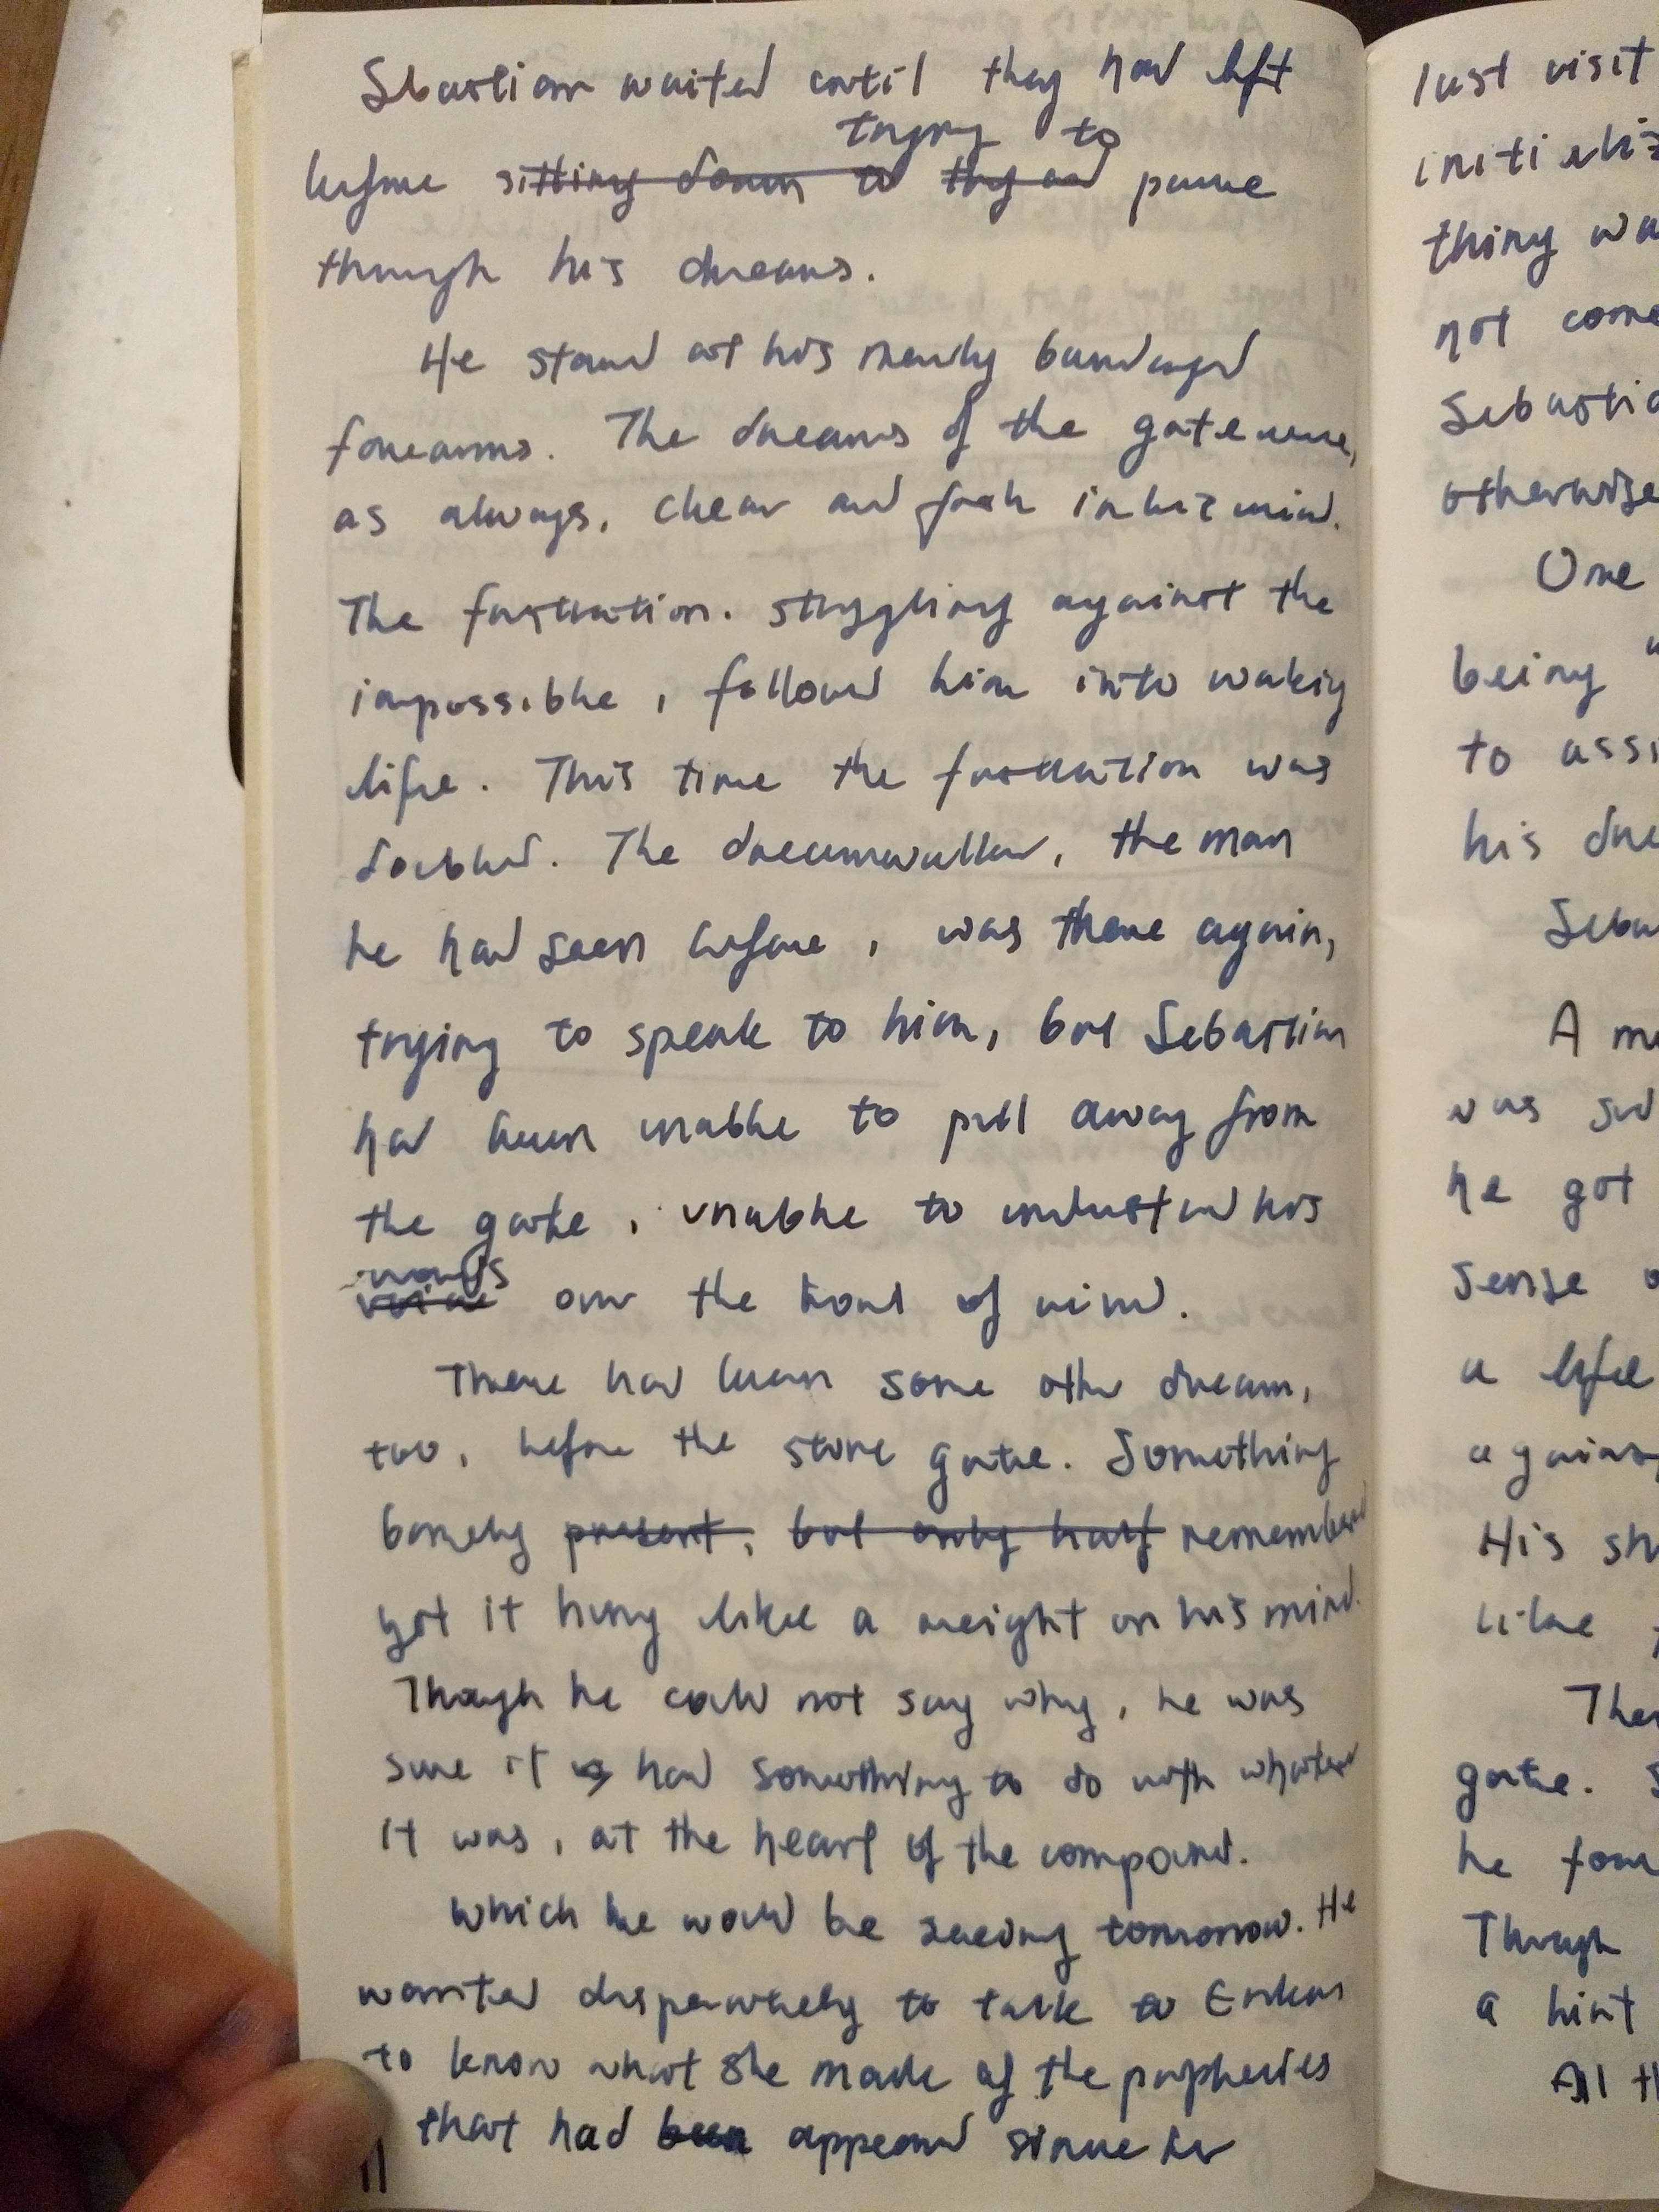 Sebastian waited until they had left
trying to
before sitting down to try and parse
through his dreams.
He stared at his newly bandaged
forearms. The dreams of the gate were,
as always, clear and fresh in his mind.
The frustration. struggling against the
impossible, followed him into waking
life. This time the frustration was
doubled. The dreamwalker, the man
he had seen before, was there again,
trying to speak to him, but Sebastian
had been unable to pull away from
the gate, unable to understand his
words
voice over the howl of wind.
There had been some other dream,
too, before the stone gate. Something
barely present, but only half remembered
yet it hung like a weight on his mind.
Though he could not say why, he was
sure it had something to do with whatever
it was, at the heart of the compound.
Which he would be seeing tomorrow. He
wanted desperately to talk to
to know what she made of the prophecies
that had been appeared since her
last visit
thing wa
not come
Sebastia
otherwise
One
being "
to assi
his dre
Seba
A me
was su
he got
sense o
a life
agains
His sh
like
Ther
gate. S
he foun
Though
a hint
All th